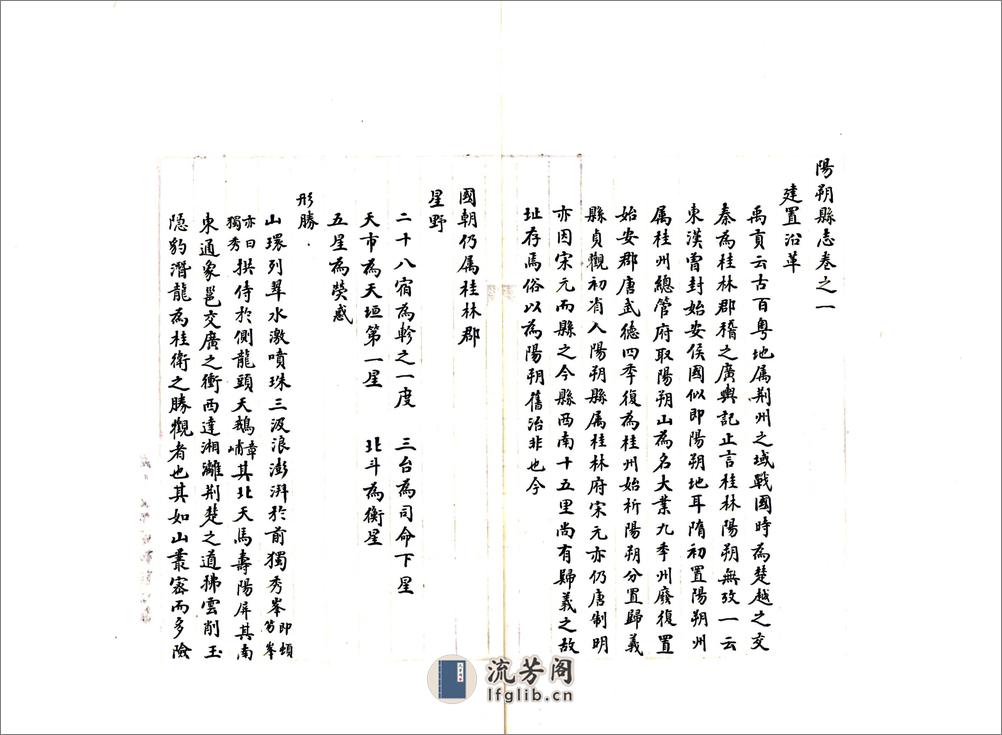 陽朔縣志卷之一
建置沿革
禹貢云古百粤地属荆州之域戰國時為楚越之交
秦為桂林郡稽之廣輿記止言桂林陽朔無攷一云
東漢曽封始安侯國似即陽朔地耳隋初置陽朔州
属桂州總管府取陽朔山為名大業九年州廢復置
始安郡唐武德四年復為桂州始析陽朔分置歸義
縣貞觀初省入陽朔縣属桂林府宋元亦仍唐制明
亦因宋元而縣之今縣西南十五里尚有歸義之故
址存焉俗以為陽朔舊治非也今
國朝仍属桂林郡
星野
二十八宿為軫之一度 三台為司命下星
天市為天垣第一星 北斗為衡星
五星為熒惑
形勝
山環列翠水激噴珠三汲浪澎湃於前獨秀峯即頓笏峯
亦曰獨秀拱侍於側龍頭天鵝嶂崤其北天馬壽陽屏其南
東通象邕交廣之衝西達湘灕荆楚之道拂雲削玉
隱豹潛龍為桂衛之勝觀者也其如山叢宻而多險
流芳阁
lfglib.cn